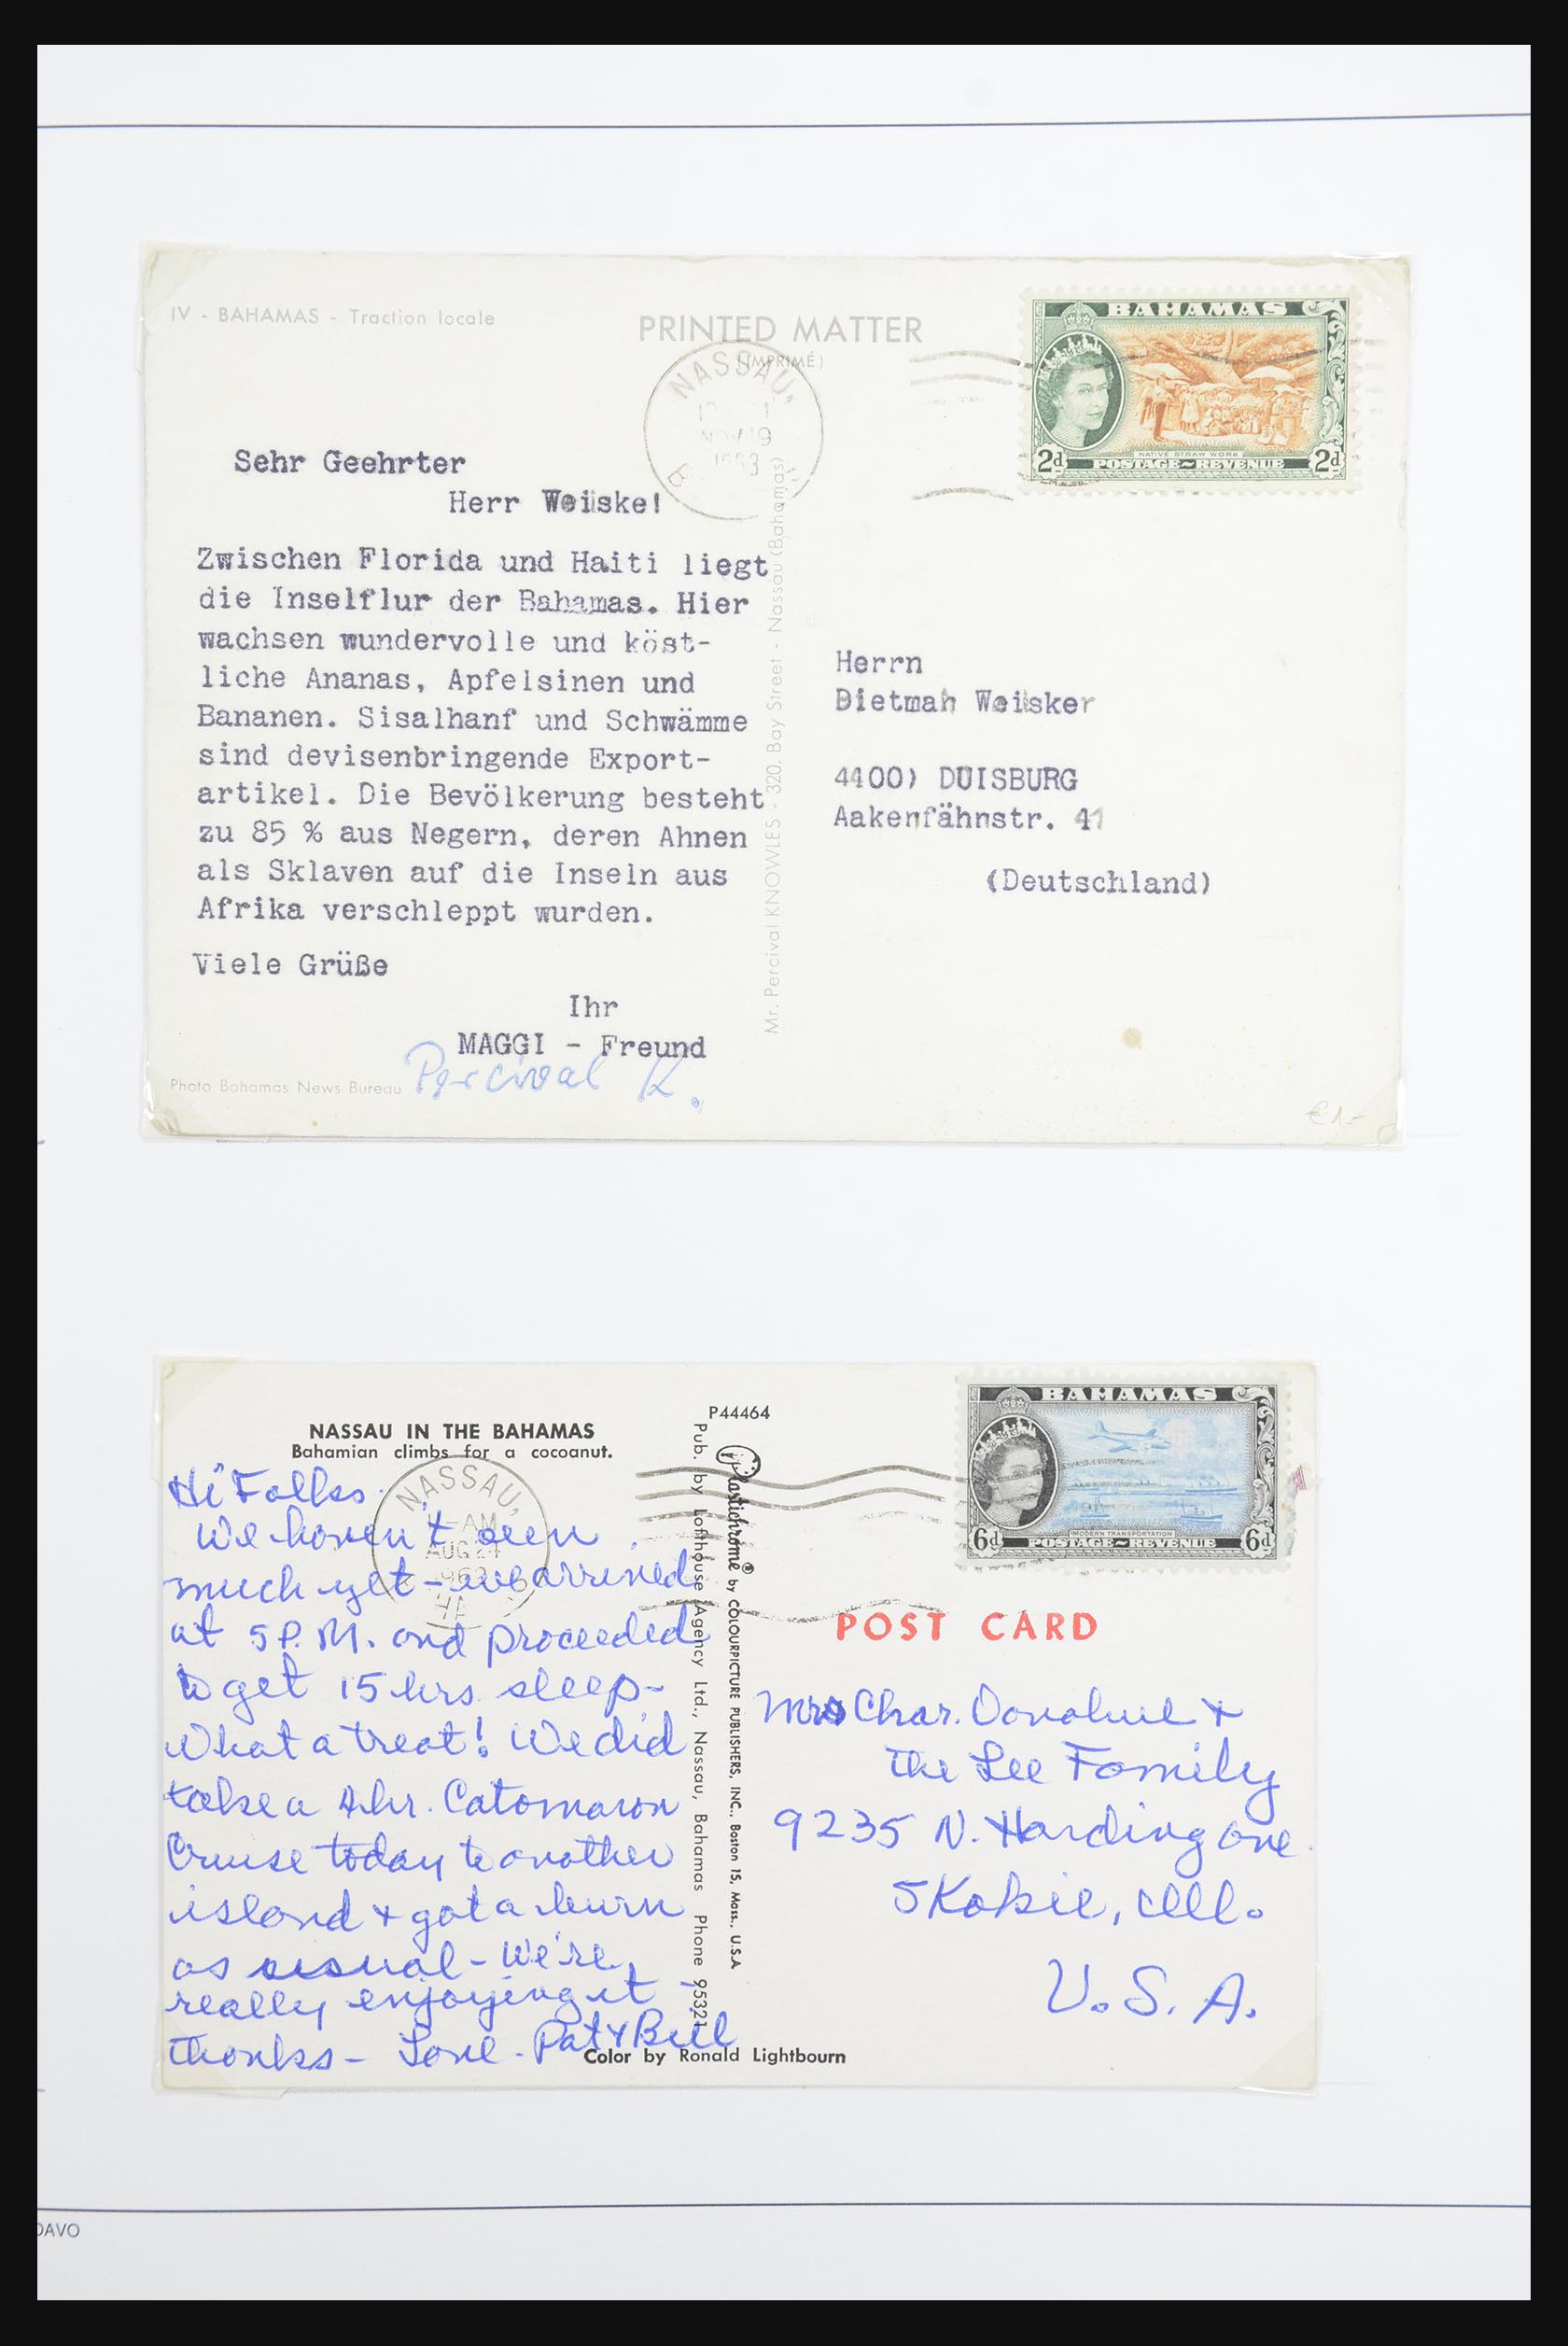 IV - BAHAMAS - Traction locale
PRINTED MATTER
(IMPRIMÉ)
NASSAU,
NOV 19
BAHAMAS
NATIVE STRAW WORK
2d POSTAGE~REVENUE 2d
Sehr Geehrter
Herr Weiske!
Zwischen Florida und Haiti liegt
die Inselflur der Bahamas. Hier
wachsen wundervolle und köst-
liche Ananas, Apfelsinen und
Bananen. Sisalhanf und Schwämme
sind devisenbringende Export-
artikel. Die Bevölkerung besteht
zu 85 % aus Negern, deren Ahnen
als Sklaven auf die Inseln aus
Afrika verschleppt wurden.
Viele Grüße
Ihr
MAGGI - Freund
Percival K.
Photo Bahamas News Bureau
Mr. Percival KNOWLES - 320, Bay Street - Nassau (Bahamas)
Herrn
Dietmah Weisker
4400) DUISBURG
Aakenfähnstr. 41
(Deutschland)
€1-
NASSAU IN THE BAHAMAS
Bahamian climbs for a cocoanut.
P44464
NASSAU,
AM
AUG 24
BAHAMAS
MODERN TRANSPORTATION
6d POSTAGE~REVENUE 6d
Hi Folks
We haven't seen
much yet - we arrived
at 5 P.M. and proceeded
to get 15 hrs sleep-
What a treat! We did
take a 4 hr. Catamaran
Cruise today to another
island + got a burn
as usual - We're
really enjoying it -
thanks - Love - Pat & Bill
Color by Ronald Lightbourn
Pub. by Lofthouse Agency Ltd., Nassau, Bahamas Phone 95321
Plastichrome ® by COLOURPICTURE PUBLISHERS, INC., Boston 15, Mass., U.S.A
POST CARD
Mrs Char. Donahue +
the Lee Family
9235 N. Harding ave.
Skokie, Ill.
U.S.A.
DAVO